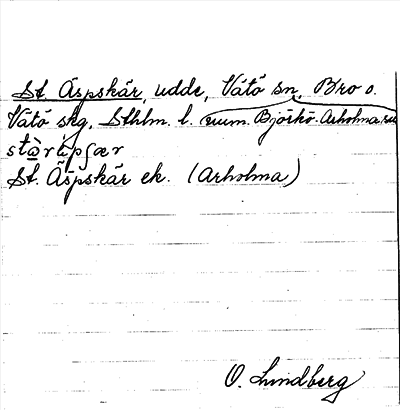 St. Äspskär, udde, Vätö sn, Bro o.
Vätö skg, Sthlm. l. num. Björkö-Arholma sn
St. Äspskär ek. (Arholma)
O. Lundberg